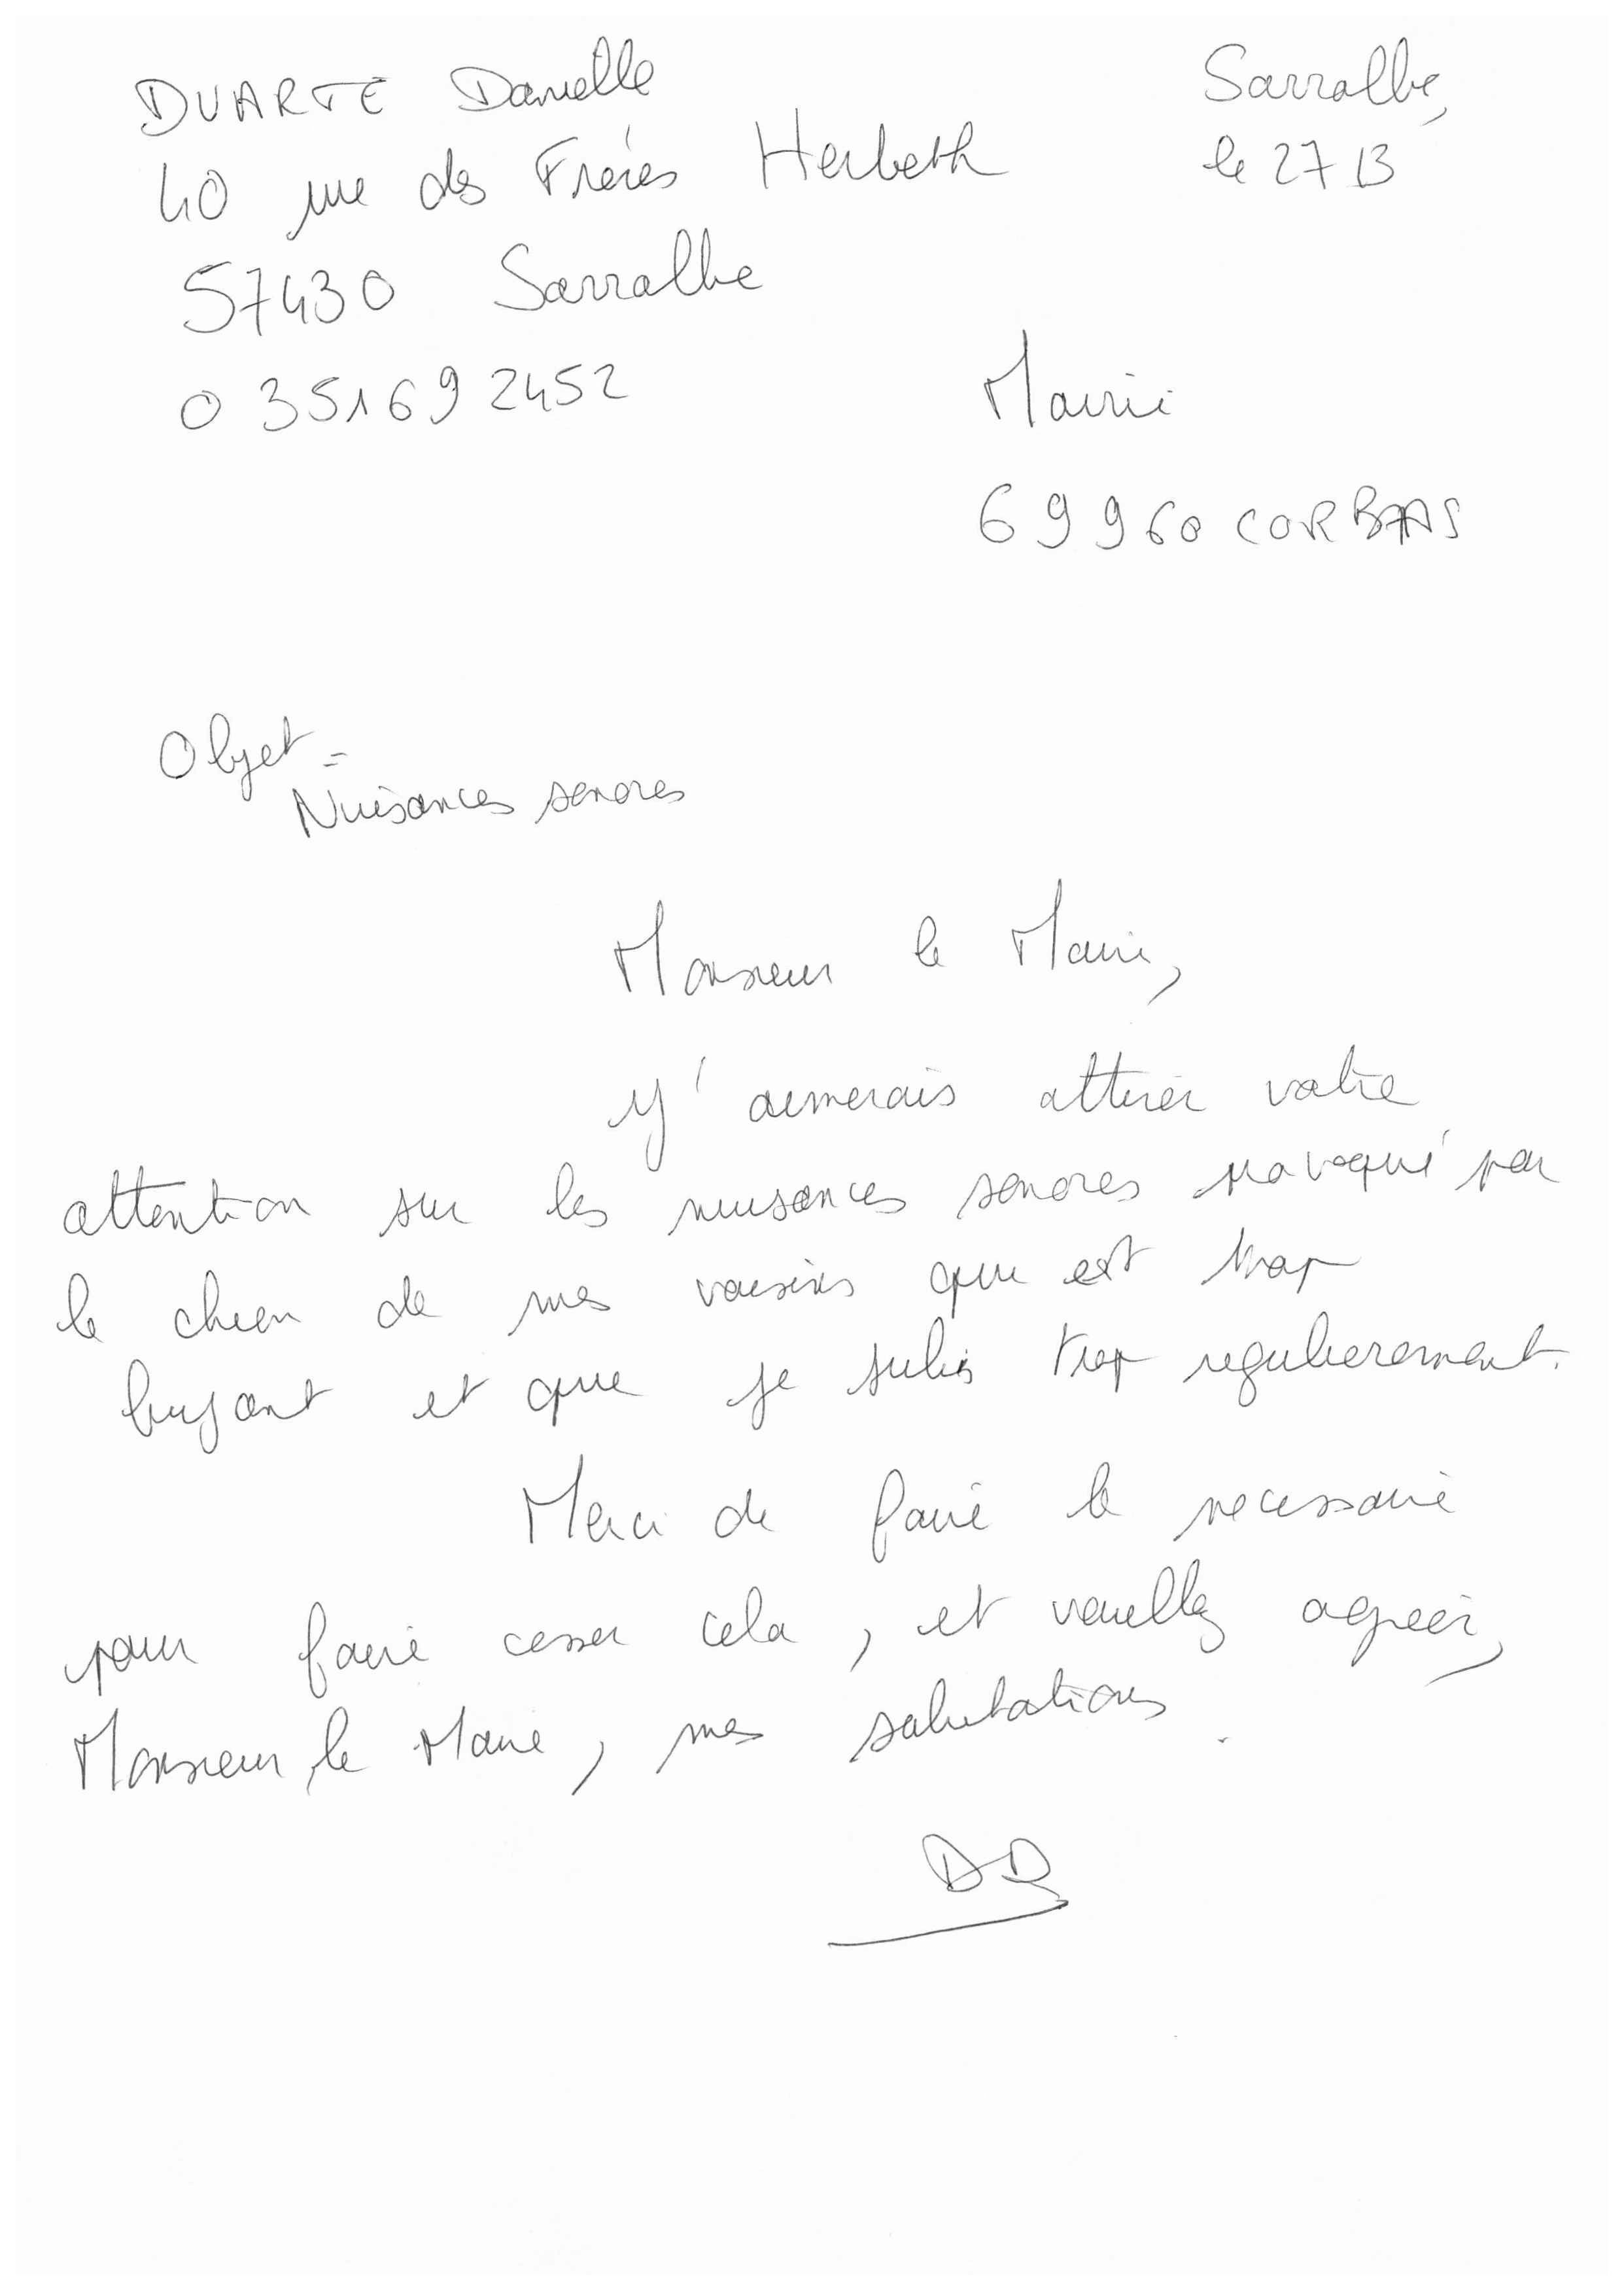 DUARTE Danielle
40 rue des Frères Herbeth
57430 Sarralbe
0351692452
Sarralbe,
le 27
Mairie
69960 CORBAS
Objet =
Nuisances sonores
Monsieur le Maire,
J'aimerais attirer votre
attention sur les nuisances sonores provoqué par
le chien de mes voisins qui est trop
bruyant et que je subis trop regulierement.
Merci de faire le necessaire
pour faire cesser cela, et veuillez agreer,
Monsieur, le Maire, mes salutations.
DD